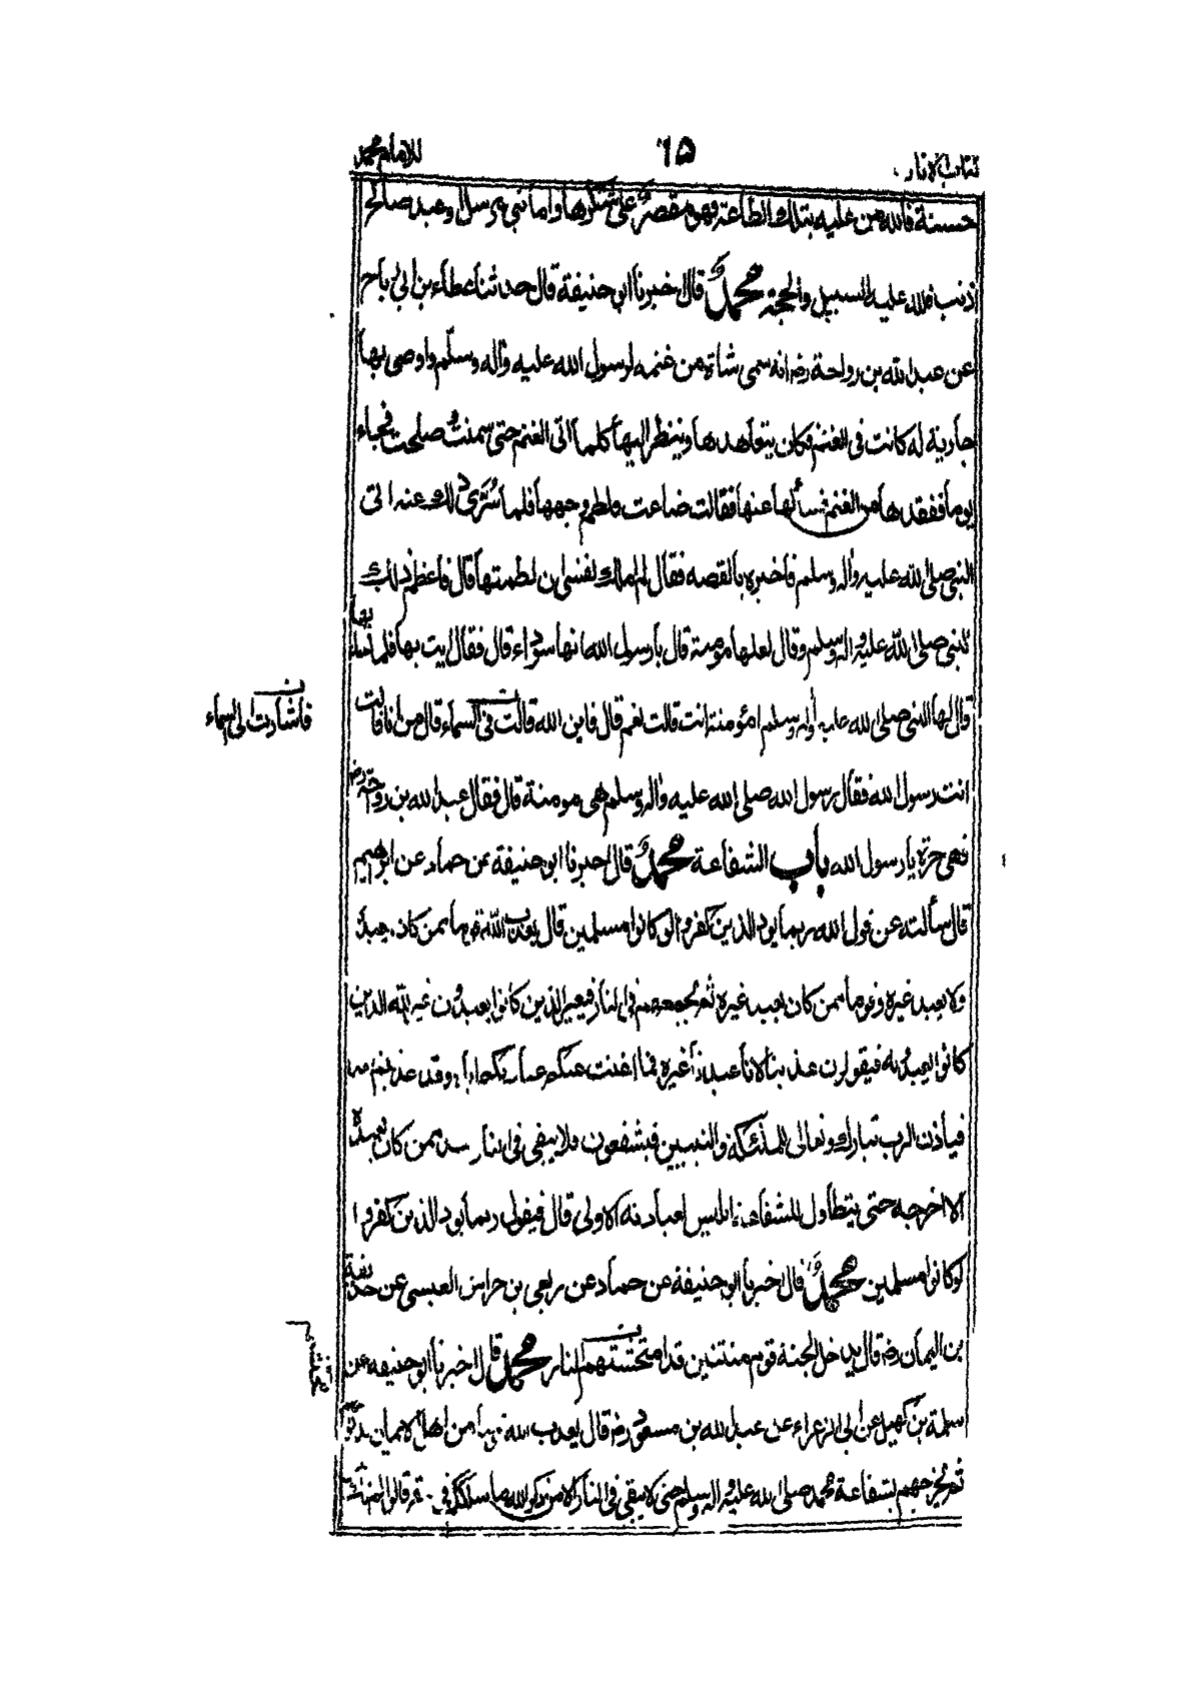 كتاب الاثار
٦٥
للامام محمد
حسنة فالله من عليه بتلك الطاعة فهو مقصر عن شكرها واما نبي مرسل وعبد صالح
اذنب فلله عليه السبيل والحجة محمد قال اخبرنا ابو حنيفة قال حدثنا عطاء بن ابي رباح
عن عبد الله بن رواحة رضـ انه سمى شاة من غنمه لرسول الله عليه واله وسلم واوصى بها
جارية له كانت في الغنم فكان يتعاهدها وينظر اليها كلما اتى الغنم حتى سمنت وصلحت فجاء
يوما ففقدها من الغنم فسألها عنها فقالت ضاعت فلطم وجهها فلما سرى ذلك عنه اتى
النبي صلى الله عليه واله وسلم فاخبره بالقصه فقال لم املك نفسي ان لطمتها قال فاعظم ذلك
النبي صلى الله عليه واله وسلم وقال لعلها مومنة قال يا رسول الله انها سوداء قال فقال ايت بها فلما اتاه بها
قال لها النبي صلى الله عليه واله وسلم امؤمنة انت قالت نعم قال فاين الله قالت في السماء قال من انا قالت
فأشارت الى السماء
انت رسول الله فقال رسول الله صلى الله عليه واله وسلم هي مومنة قال فقال عبد الله بن رواحة رضـ
فهي حرة يا رسول الله باب الشفاعة محمد قال اخبرنا ابو حنيفة عن حماد عن ابرهيم
قال سألته عن قول الله ربما يود الذين كفروا لو كانوا مسلمين قال يعذب الله قوما ممن كان يعبده
ولا يعبد غيره وقوما ممن كان يعبد غيره ثم يجمعهم في النار فيعير الذين كانوا يعبدون غير الله الذين
كانوا يعبدونه فيقولون عذبنا لانا عبدنا غيره فما اغنت عنكم عبادتكم اياه وقد عذبتم معنا
فيأذن الرب تبارك وتعالى للملئكة والنبيين فيشفعون فلا يبقى في النار احد ممن كان يعبده
الا اخرجه حتى يتطاول للشفاعة ابليس لعبادته الاولى قال فيقول ربما يود الذين كفروا
لو كانوا مسلمين محمد قال اخبرنا ابو حنيفة عن حماد عن ربعي بن حراش العبسي عن حذيفة
بن اليمان رضـ قال يدخل الجنة قوم منتنين قد امتحشتهم النار محمد قال اخبرنا ابو حنيفه عن
سلمة بن كهيل عن ابي الزعراء عن عبد الله بن مسعود رضـ قال يعذب الله قوما من اهل الايمان
ثم يخرجهم بشفاعة محمد صلى الله عليه واله وسلم حتى لا يبقى في النار الا من ذكر الله ما سلككم في سقر قالوا لم نك